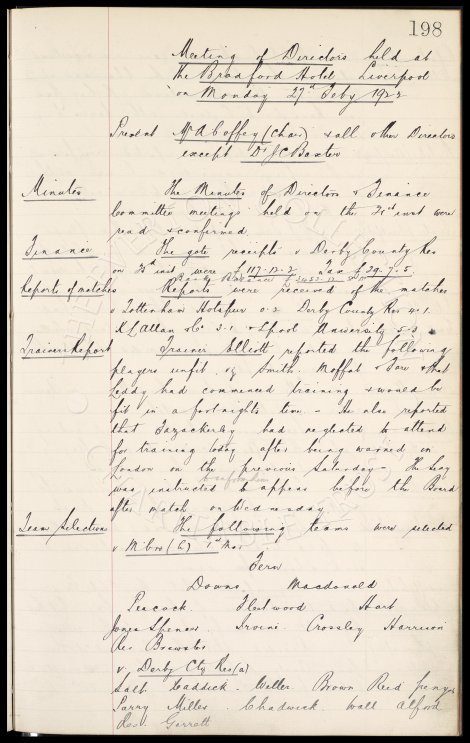 198
Meeting of Directors held at
the Bradford Hotel Liverpool
on Monday 27th Feby 1922
Present Mr A Coffey (Chair) & all other Directors
except Dr J C Baxter
Minutes The Minutes of Directors & Finance
Committee meetings held on the 21st inst were
read & confirmed
Finance The gate receipts v Derby County Res
on inst were £117.12.2 Tax £29.7.5.
Bank Balance
Reports of matches Reports were received of the matches
v Tottenham Hotspur 0.2 Derby County Res 4.1.
X L Allan & Co 3.1 & Lpool University 5.3
Trainers Report Trainer Elliott reported the following
players unfit, vz Smith. Moffat & Fare & that
Leddy had commenced training & would be
fit in a fortnights time. - He also reported
that Fazackerley had neglected to attend
for training today after being warned in
London on the previous Saturday - The Secy
was instructed to appear before the Board
after match on Wednesday
Team Selection The following teams were selected
v M'bro (h) 1st Mar
Fern
Downs Macdonald
Peacock Fleetwood Hart
Jones Spencer Irvine. Crossley Harrison
Res Brewster
v. Derby Cty Res (a)
Salt Caddick. Weller Brown Reid
Parry Miller. Chadwick. Wall Alford
Res. Garrett